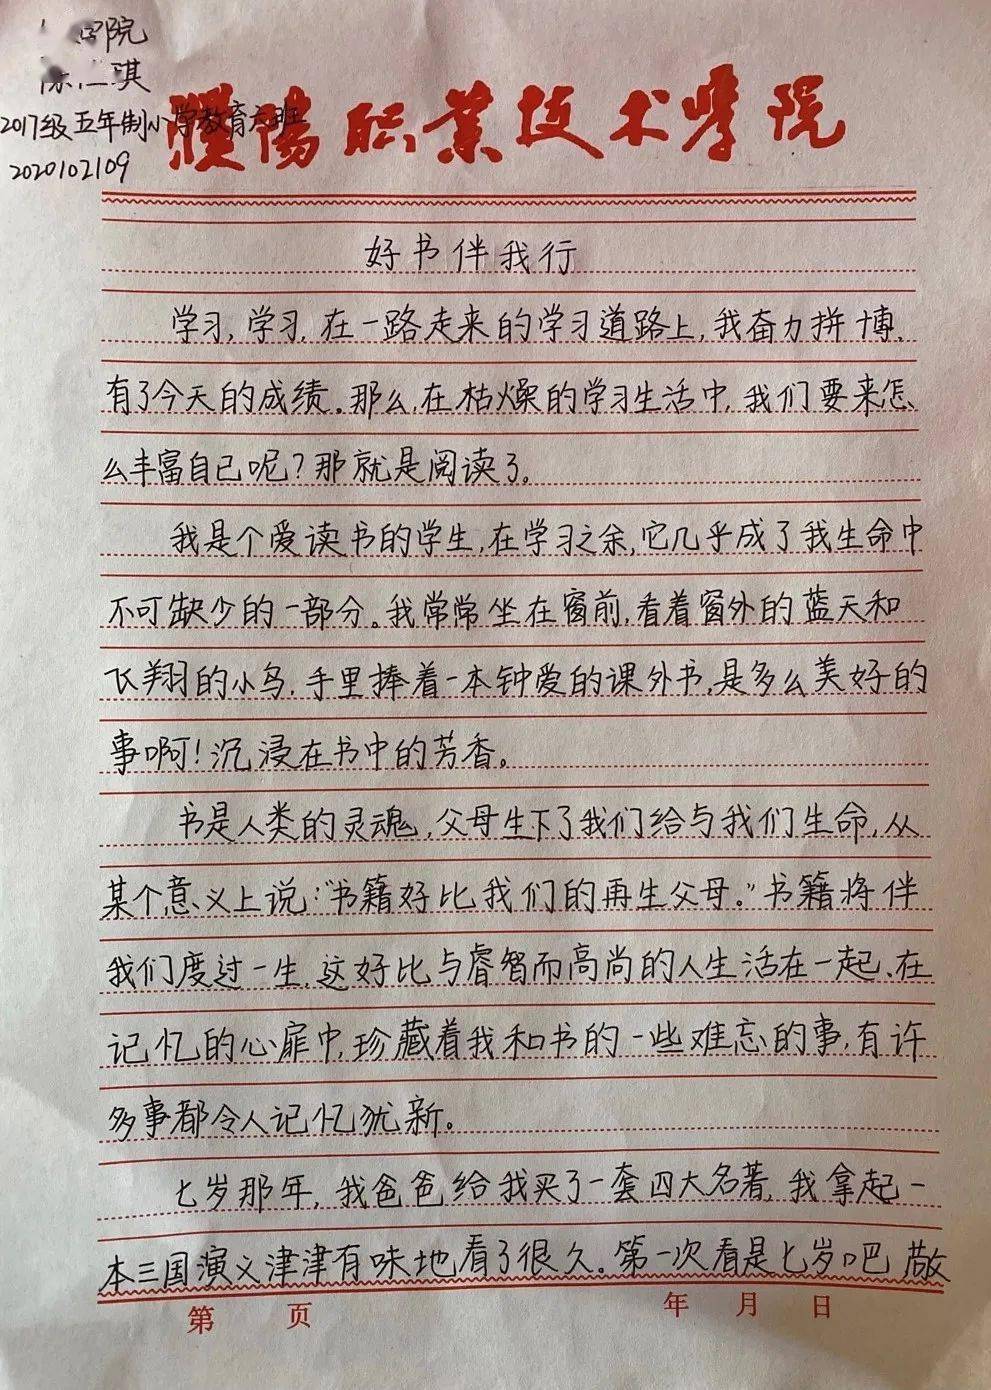 院
琪
2017级五年制小学教育六班
2020102109
濮阳职业技术学院
好书伴我行
学习,学习,在一路走来的学习道路上,我奋力拼博,
有了今天的成绩。那么,在枯燥的学习生活中,我们要来怎
么丰富自己呢?那就是阅读了。
我是个爱读书的学生,在学习之余,它几乎成了我生命中
不可缺少的一部分。我常常坐在窗前,看着窗外的蓝天和
飞翔的小鸟,手里捧着一本钟爱的课外书,是多么美好的
事啊!沉浸在书中的芳香。
书是人类的灵魂,父母生下了我们给与我们生命,从
某个意义上说:“书籍好比我们的再生父母。”书籍将伴
我们度过一生,这好比与睿智而高尚的人生活在一起、在
记忆的心扉中,珍藏着我和书的一些难忘的事,有许
多事都令人记忆犹新。
七岁那年,我爸爸给我买了一套四大名著,我拿起一
本三国演义津津有味地看了很久。第一次看是七岁吧
第 页 年 月 日